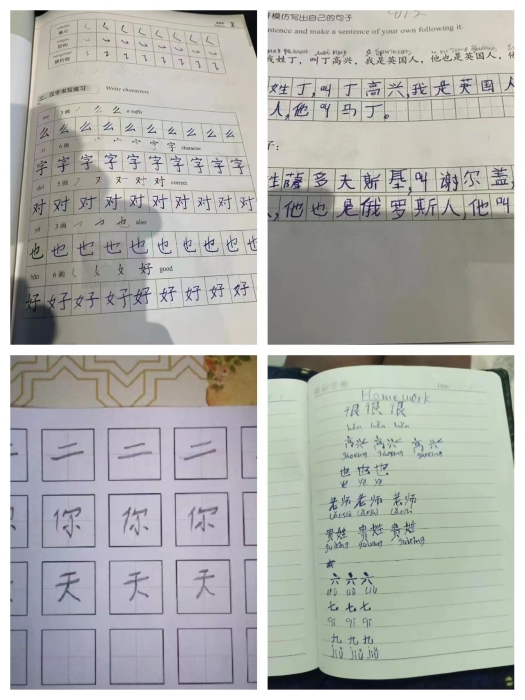 三、汉字书写练习 Write characters
3画 a suffix
么 么 么 么 么 么 么 么 么
6画 character
字 字 字 字 字 字 字 字 字
duì 5画 对 对 correct
对 对 对 对 对 对 对 对 对
yě 3画 也 also
也 也 也 也 也 也 也 也
hǎo 6画 女 好 good
好 好 好 好 好 好 好 好 好
模仿写出自己的句子
ntence and make a sentence of your own following it.
我姓丁，叫丁高兴，我是英国人，他也是英国人，
姓丁，叫丁高兴，我是英国人
人，他叫马丁。
姓薩多夫斯基，叫谢尔盖，
，他也是俄罗斯人，他叫
二 二 二 二
你 你 你 你
天 天 天 天
Homework
很 很 很
hěn hěn hěn
高兴 高兴 高兴
gāoxìng gāoxìng gāoxìng
也 也 也
yě yě yě
老师 老师 老师
贵姓 贵姓 贵姓
guìxìng guìxìng guìxìng
六 六 六
liù liù liù
七 七 七
qī qī qī
九 九 九
jiǔ jiǔ jiǔ